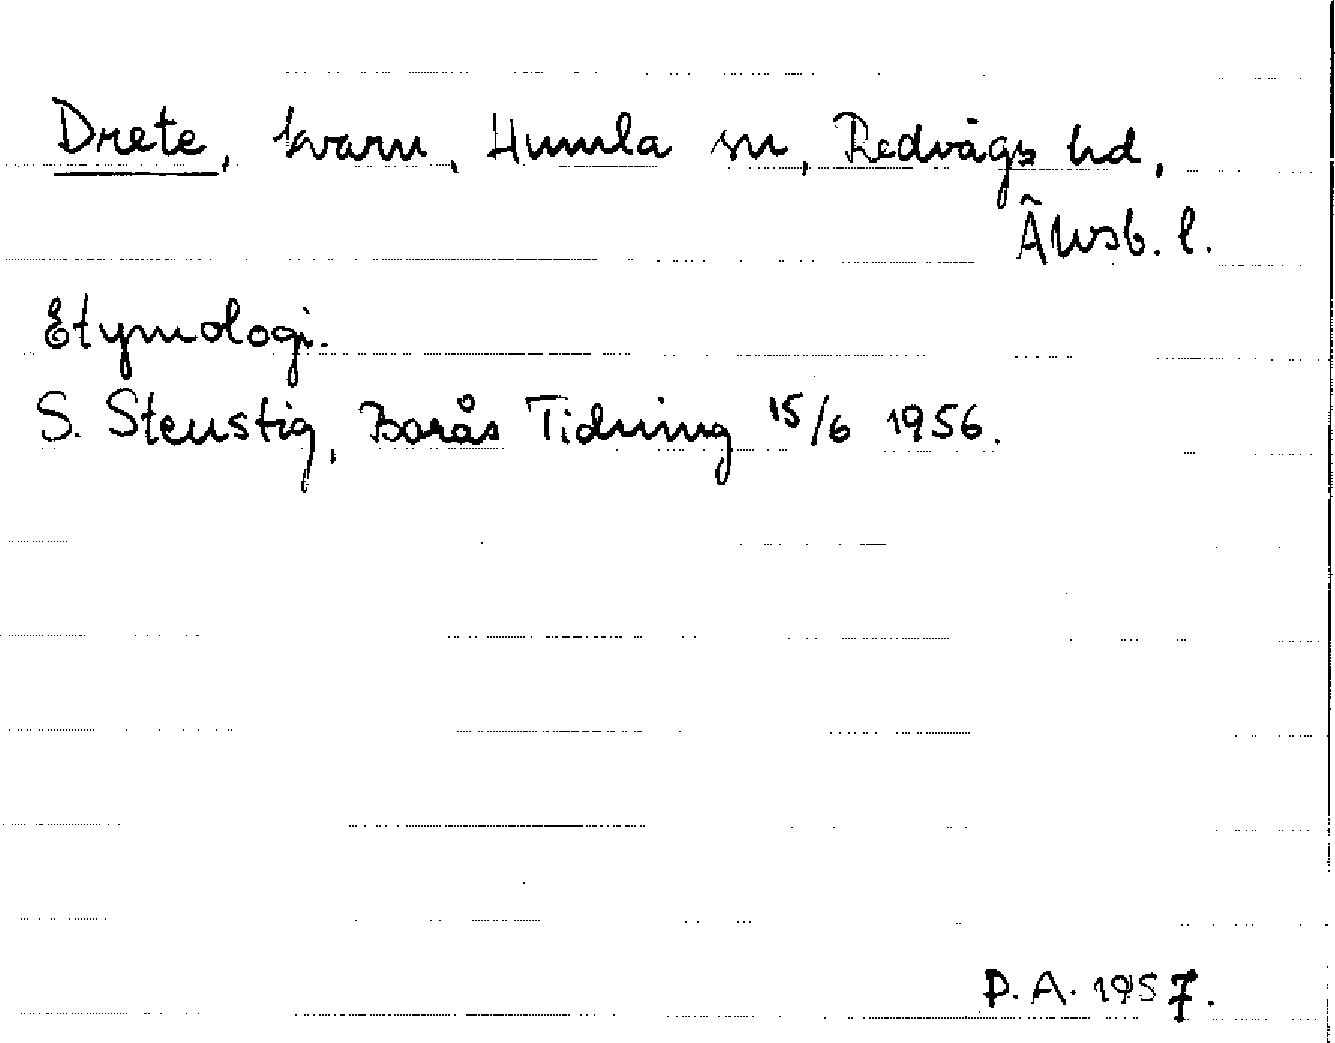 Drete, kvarn, Humla sn, Redvägs hd,
Älvsb. l.
Etymologi.
S. Stenstig, Borås Tidning 15/6 1956.
P. A. 1957.